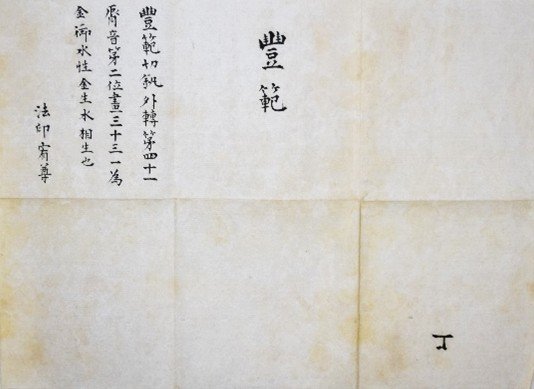 丁
豐範
豐範切外轉第四十一
脣音第二位畫三十三一為
金御水性金生水相生也
法印宥